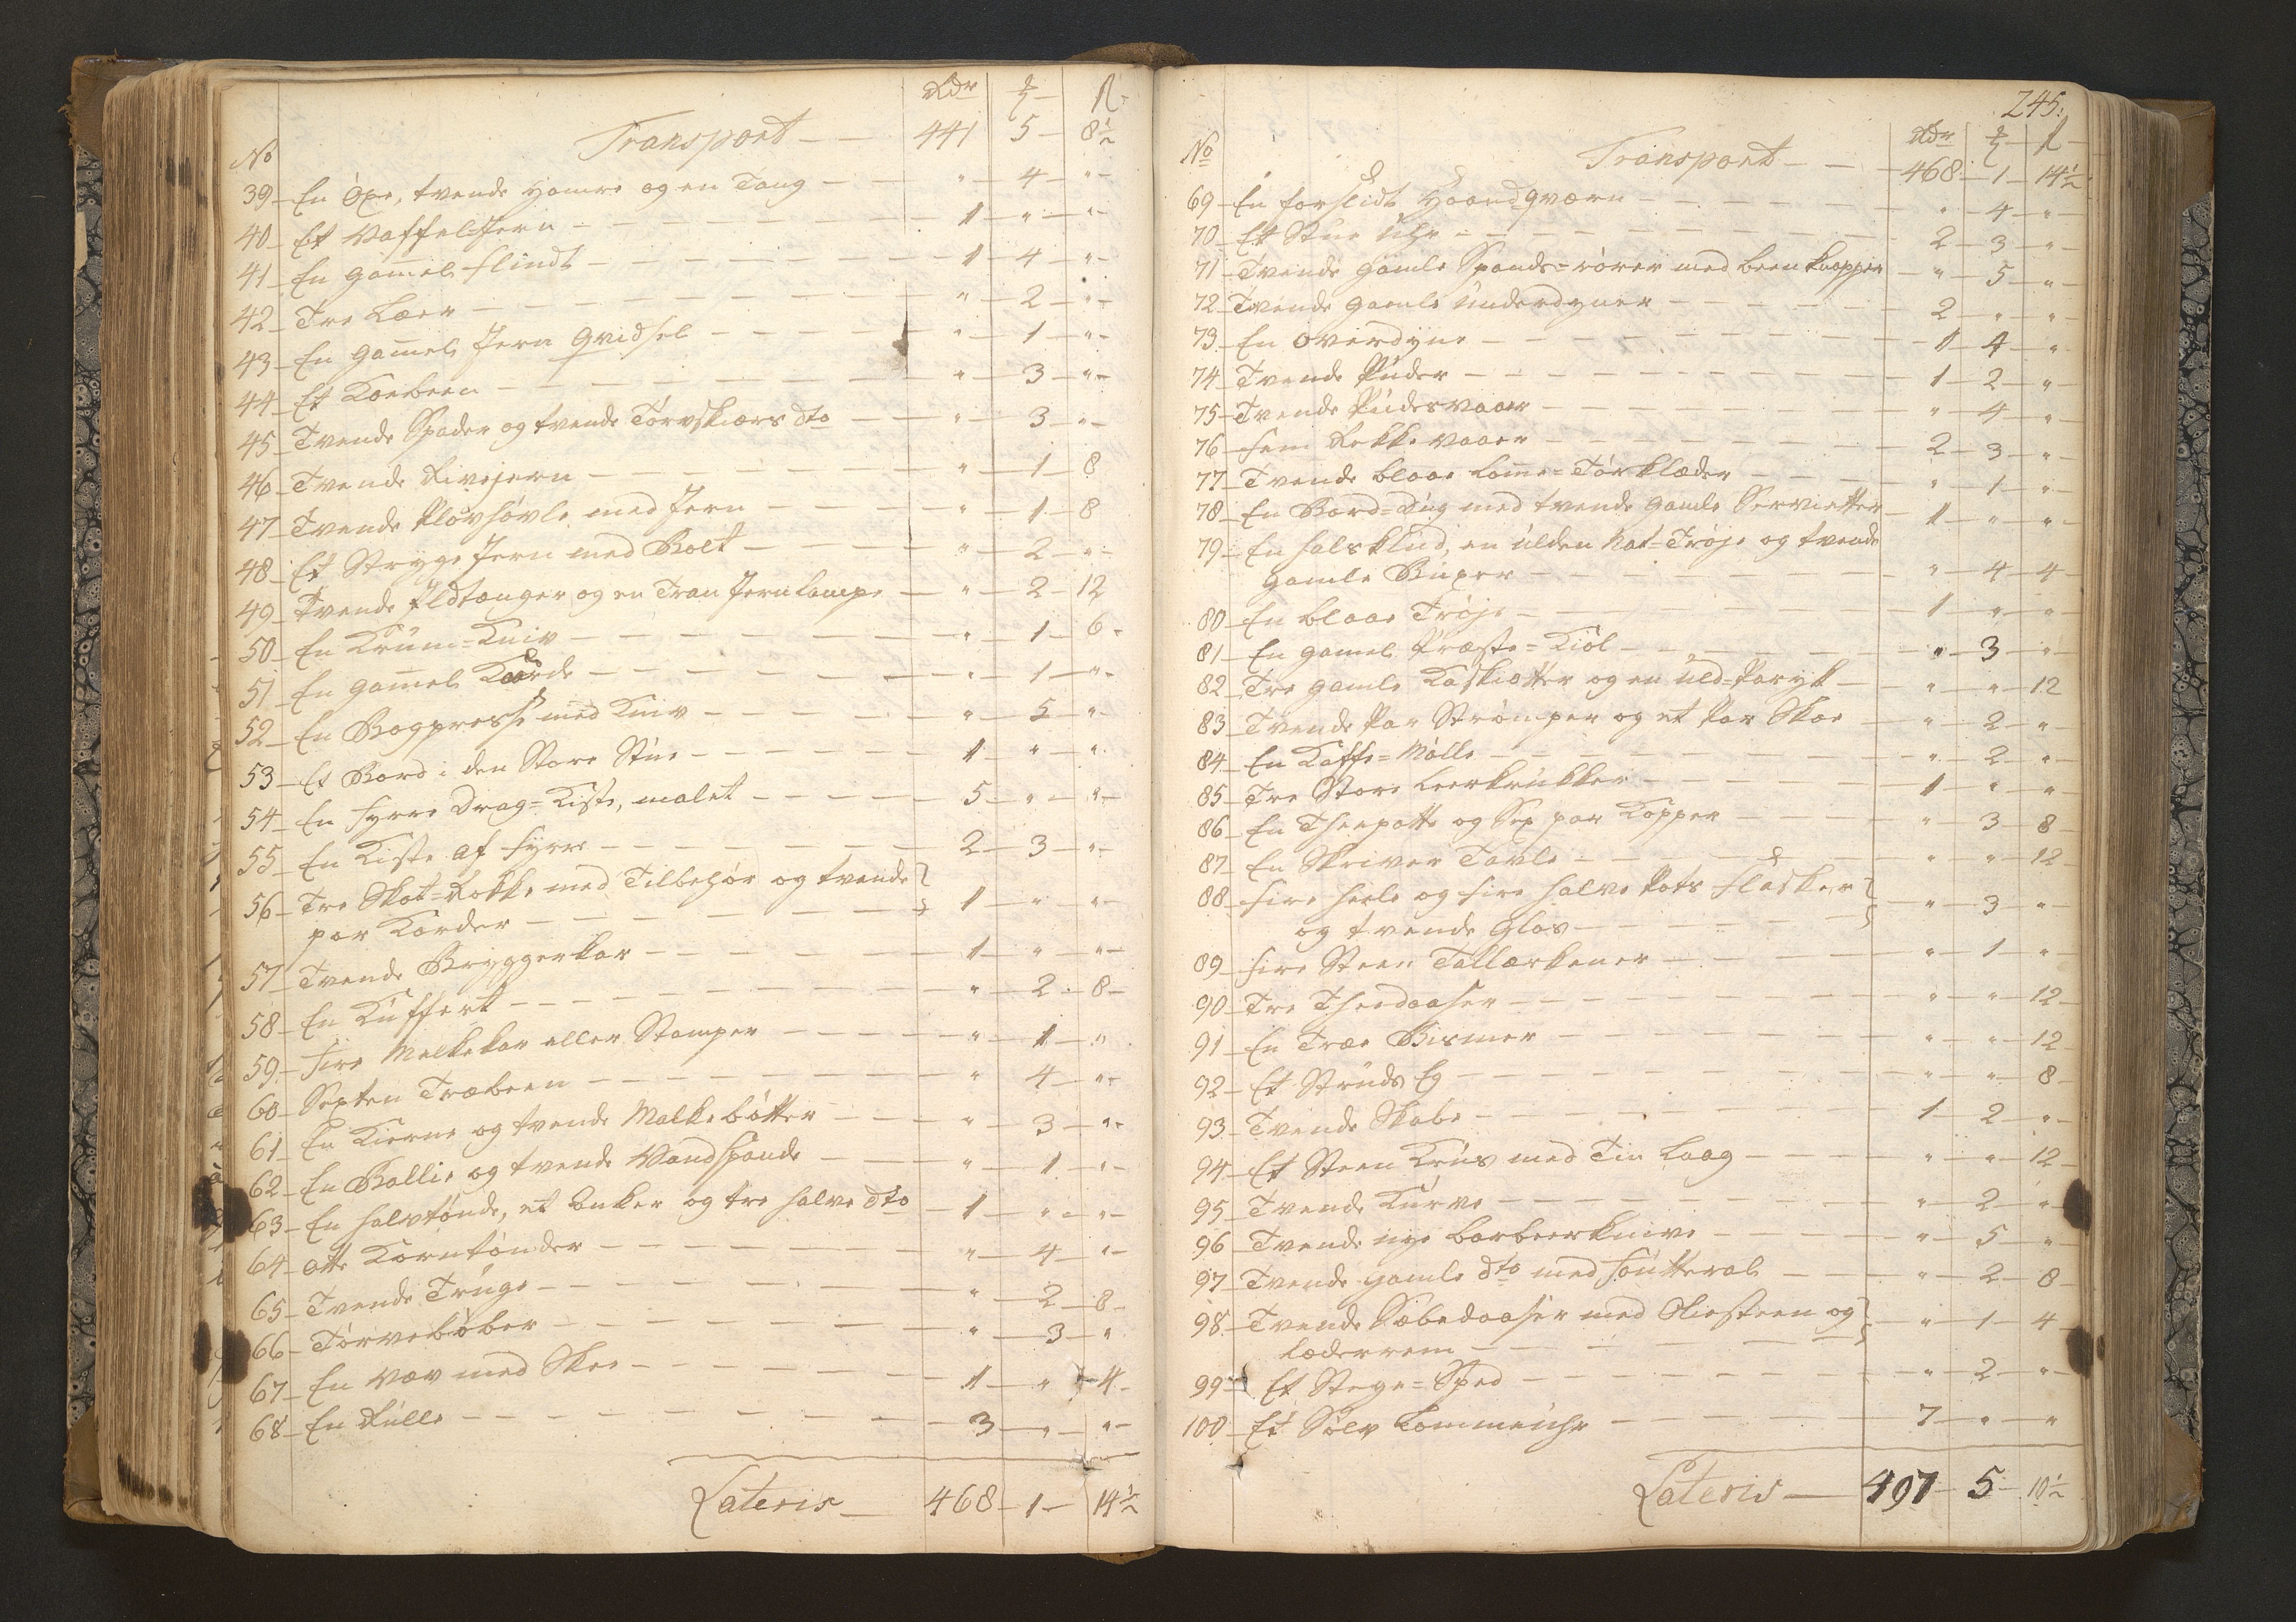 Rdr ʒ ß
No Transport — 441 5 8½
39 En Øxe, tvende Hamre og en Tang — " 4 "
40 Et Vaffel-Jern — 1 " "
41 En gammel flindt — 1 4 "
42 Tre Læer — " 2 "
43 En gammel Jern Qvidsel — " 1 "
44 Et Koebeen — " 3 "
45 Tvende Spader og tvende Tørvskiærs dto — " 3 "
46 Tvende Rivejern — " 1 8
47 Tvende Plovhøvle med Jern — " 1 8
48 Et Stryge Jern med Bolt — " 2 "
49 Tvende Ildtænger og en Tran Jernlampe — " 2 12
50 En Krum=Kniv — " 1 6
51 En gammel Kaarde — " 1 "
52 En Bogpresse med Kniv — " 5 "
53 Et Bord i den Store Stue — 1 " "
54 En fyrre Drag=Kiste, malet — 5 " "
55 En Kiste af fyrre — 2 3 "
56 Tre Skot=Rokke med Tilbehør og tvende
par Karder — 1 " "
57 Tvende Bryggerkar — 1 " "
58 En Kuffert — " 2 8
59 fire Melkekar eller Stamper — " 1 "
60 Sexten Træbeen — " 4 "
61 En Kierne og tvende Malkebøtter — " 3 "
62 En Ballie og tvende Vandspande — " 1 "
63 En halvtønde, et Anker og tre halve dto — 1 " "
64 Otte Korntønder — " 4 "
65 Tvende Truge — " 2 8
66 Tørvekøber — " 3 "
67 En Væv med Skee — 1 " 4
68 En Rulle — 3 " "
Lateris — 468 1 14½
245.
Rdr ʒ ß
No Transport — 468 1 14½
69 En forslidt Haandqværn — " 4 "
70 Et Stue Uhr — 2 3 "
71 Tvende gamle Spands=rører med been knapper — " 5 "
72 Tvende gamle Underdyner — 2 " "
73 En Overdyne — 1 4 "
74 Tvende Puder — 1 2 "
75 Tvende Pudesvaaer — " 4 "
76 fem Rekkevaaer — 2 3 "
77 Tvende blaae Lomme=Tørklæder — " 1 "
78 En Bord=Dug med tvende gamle Servietter — 1 " "
79 En halsklud, en Ulden Nat=Trøje og tvende
gamle Buxer — " 4 4
80 En blaae Trøje — 1 " "
81 En gamel Præste=Kiol — " 3 "
82 Tre gamle Kaskiætter og en Uld=Paryk — " " 12
83 Tvende Par Strømper og et Par Skoe — " 2 "
84 En Kaffe=Mølle — " 2 "
85 Tre Store Leerkrukker — 1 " "
86 En Theepotte og Sex par Kopper — " 3 8
87 En Skriver Tavle — " " 12
88 fire heele og fire halve Pots flasker
og tvende Glas — " 3 "
89 fire Steen Tallærkener — " 1 "
90 Tre Theedaaser — " " 12
91 En Træe Bismer — " " 12
92 Et Struds Eg — " " 8
93 Tvende Skabe — 1 2 "
94 Et Steen Kruus med Tin Laag — " " 12
95 Tvende Kurve — " 2 "
96 Tvende nye barbeerknive — " 5 "
97 Tvende gamle dto med foutteral — " 2 8
98 Tvende Sæbedaaser med Oliesteen og
Læderrem — " 1 4
99 Et Stege=Sped — " 2 "
100 Et Sølv Lommeuhr — 7 " "
Lateris — 497 5 10½